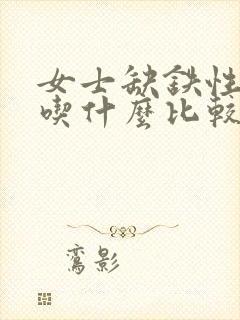 女士缺鉄性
喫什麼比較
鸞影